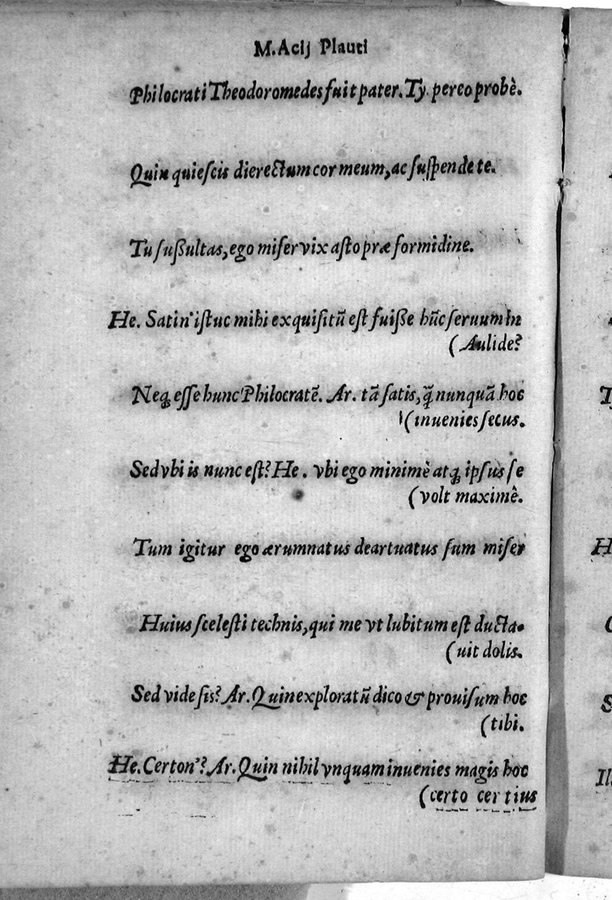 M. Acij Plauti
Philocrati Theodoromedes fuit pater. Ty. pereo probè.
Quin quiescis dierectum cor meum, ac suspende te.
Tu sußultas, ego miser vix asto præ formidine.
He. Satin' istuc mihi exquisitũ est fuiße hũc seruum in
(Aulide?
Neq; esse hunc Philocratẽ. Ar. tã satis, q̃ nunquã hoc
(inuenies secus.
Sed vbi is nunc est? He. vbi ego minimè atq; ipsus se
(volt maximê.
Tum igitur ego ærumnatus deartuatus sum miser
Huius scelesti technis, qui me vt lubitum est ducta-
(uit dolis.
Sed vide sis? Ar. Quin exploratũ dico & prouisum hoc
(tibi.
He. Certon'? Ar. Quin nihil vnquam inuenies magis hoc
(certo certius